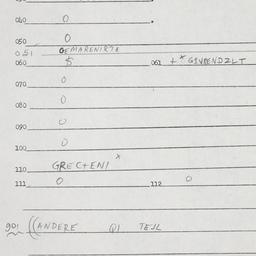 040 0
050 0
051 GEMARENIRTE
060 5 061
070 0
080 0
090 0
100 0
110 GRECTENI x
111 0 112 0
901 ((ANDERE QI TEJL